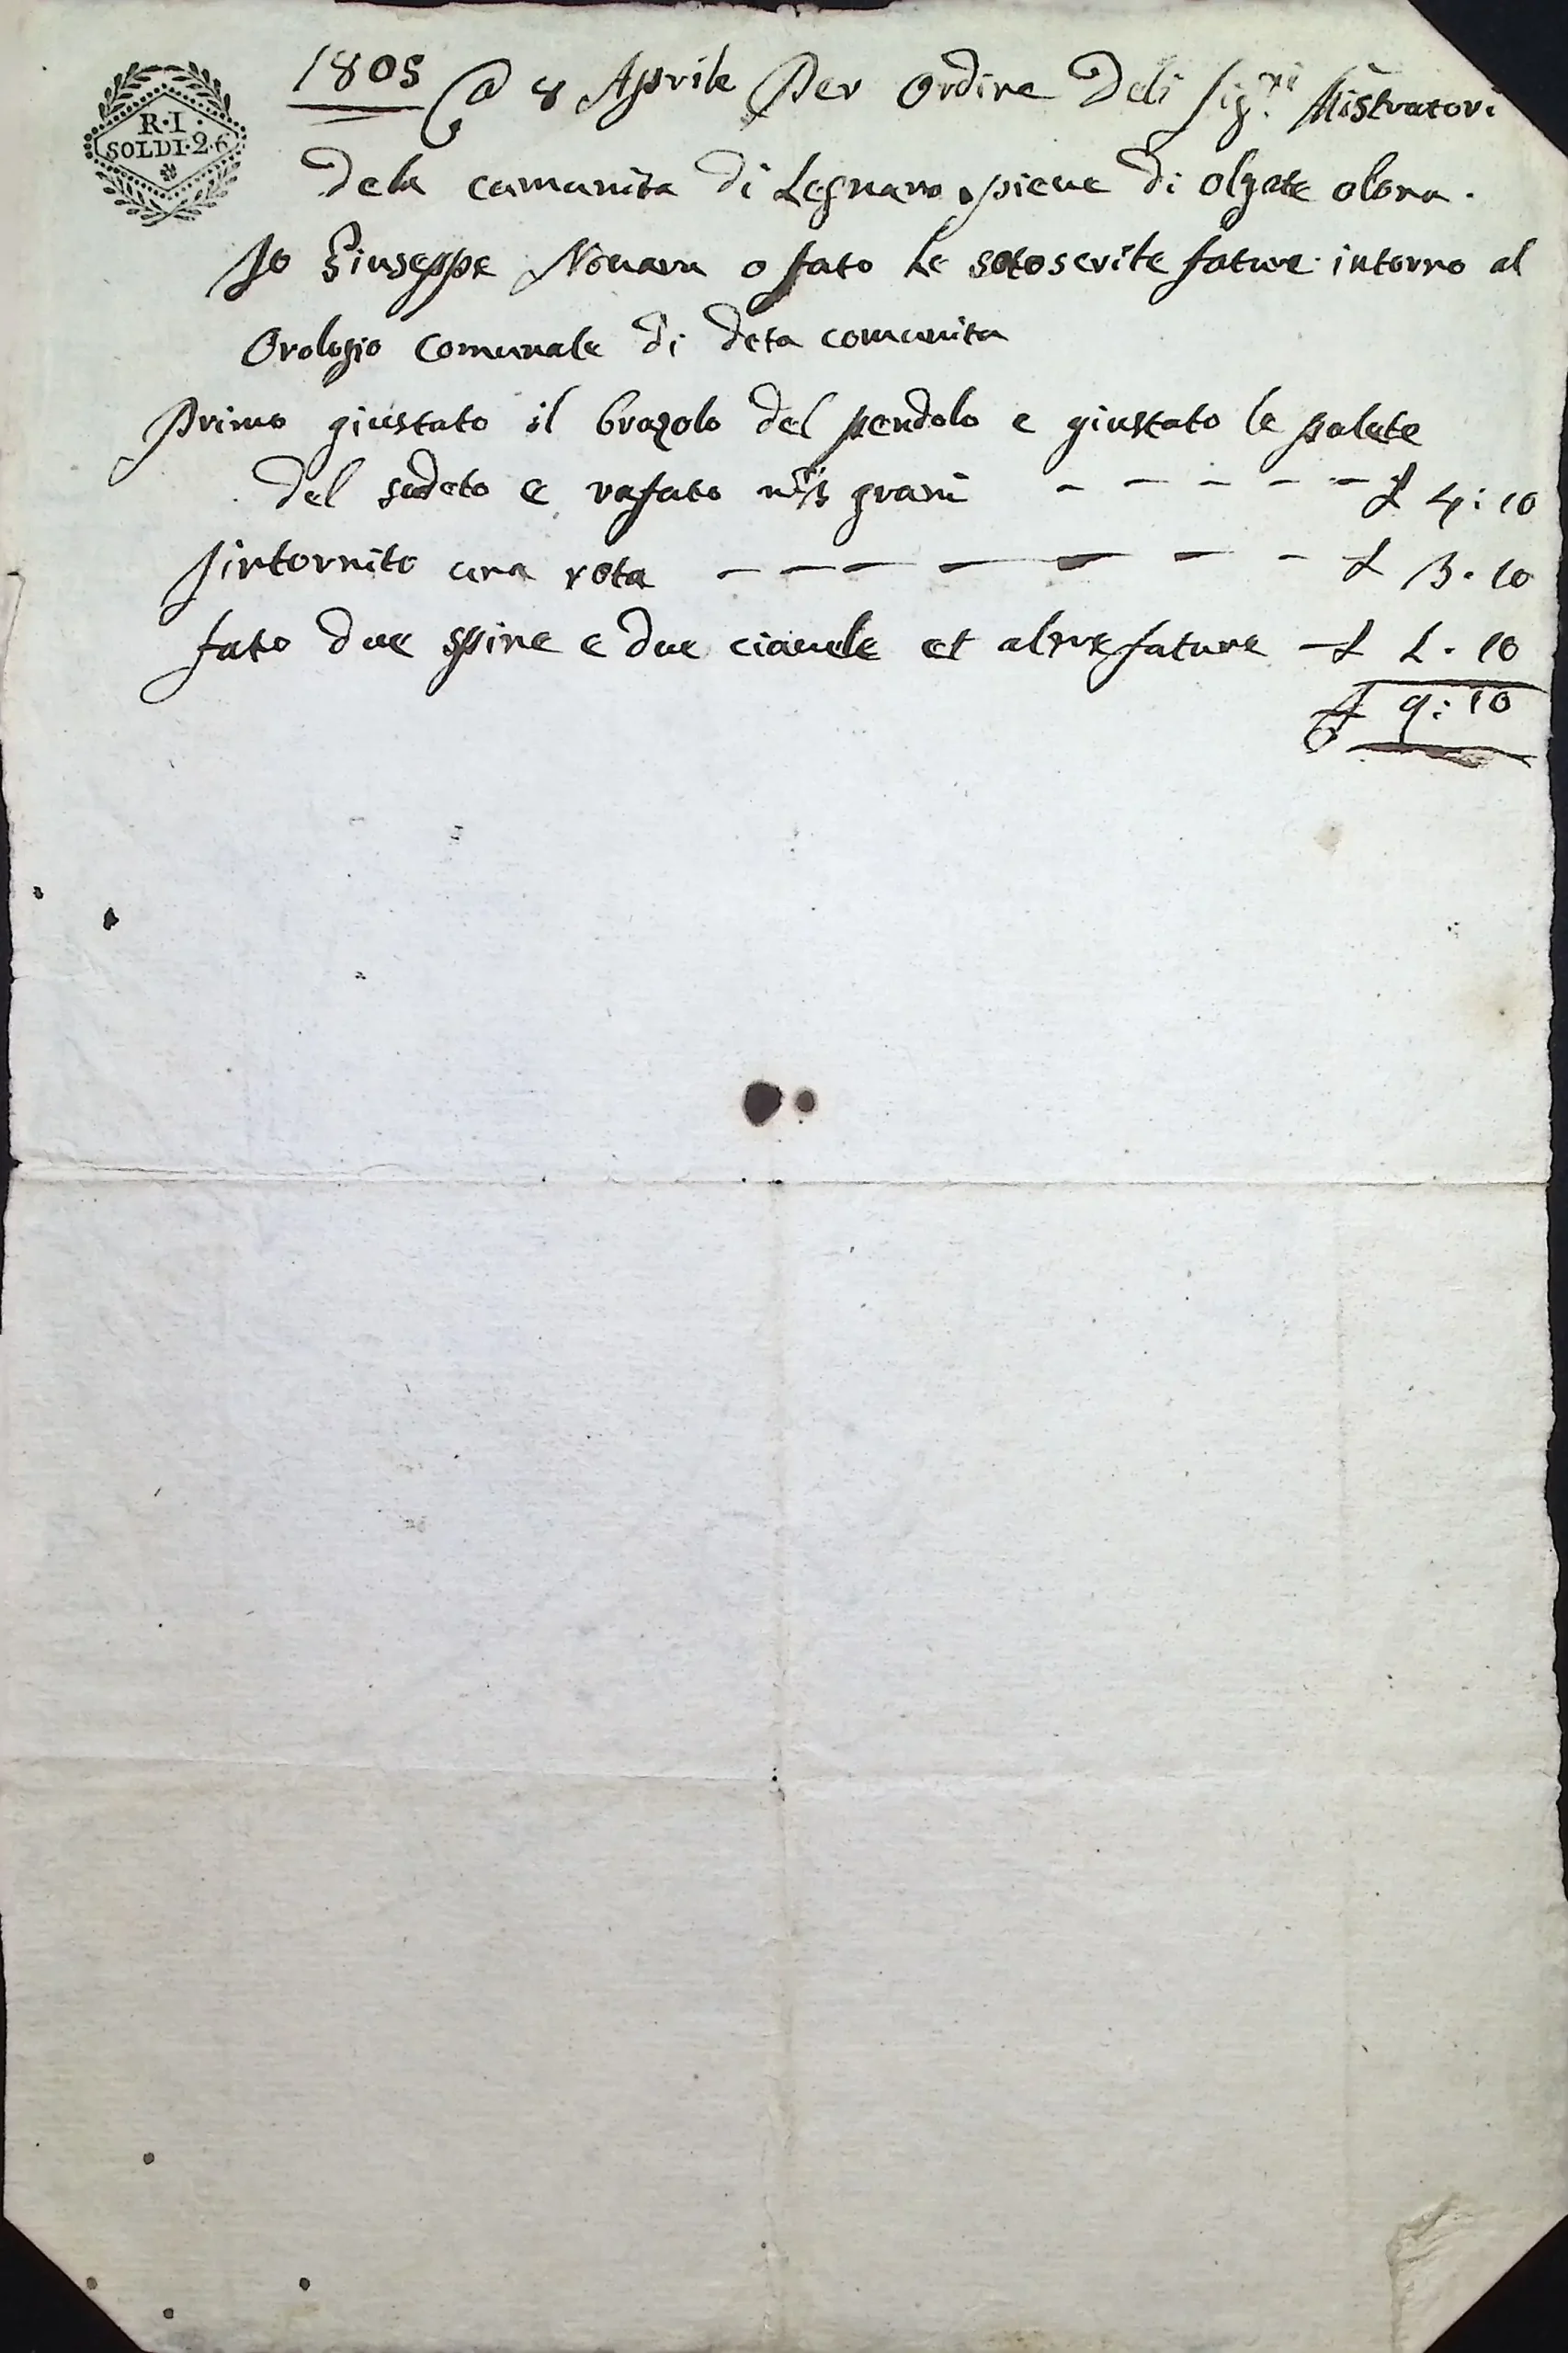 R·I·
SOLDI·2·6
1805 @ 8 Aprile Per Ordine Deli Sig.ri Mistratori
Dela comunita Di Legnano pieve Di olgate olona.
Io Giuseppe Novara o fato Le sotoscrite fature intorno al
Orologio Comunale di deta comunita
Primo giustato il brazolo del pendolo e giustato le palete
del sudeto e rafato n. 3 grani - - - - - £ 4:10
Pintornito una rota - - - - - - - - £ 3.10
fato due spine e due ciavele et altre fature - £ 1.10
£ 9:10